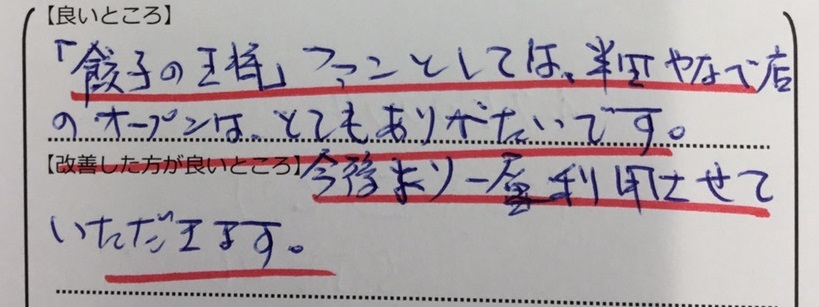 【良いところ】
「餃子の王将」ファンとしては、半田やなべ店
のオープンは、とてもありがたいです。
【改善した方が良いところ】今後より一層利用させて
いただきます。